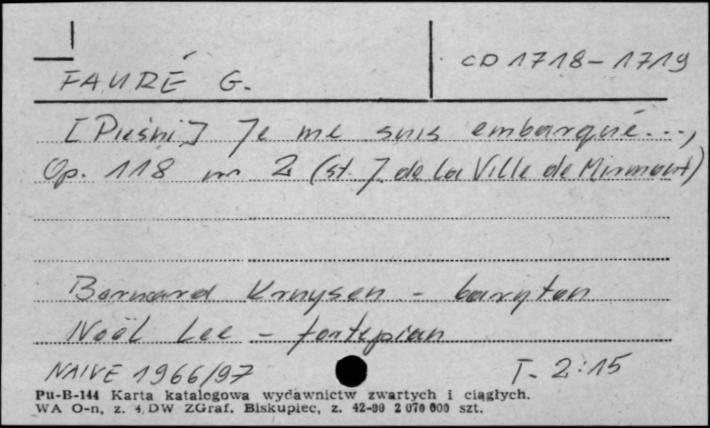 CD 1718-1719
FAURÉ G.
[Pieśni] Je me suis embarqué...,
Op. 118 nr 2 (sł. J. de la Ville de Mirmont)
Bernard Kruysen - baryton
Noël Lee - fortepian
NAIVE 1966/97 T. 2:15
Pu-B-144 Karta katalogowa wydawnictw zwartych i ciągłych.
WA O-n, z. 4 DW ZGraf. Biskupiec, z. 42-90 2 070 000 szt.